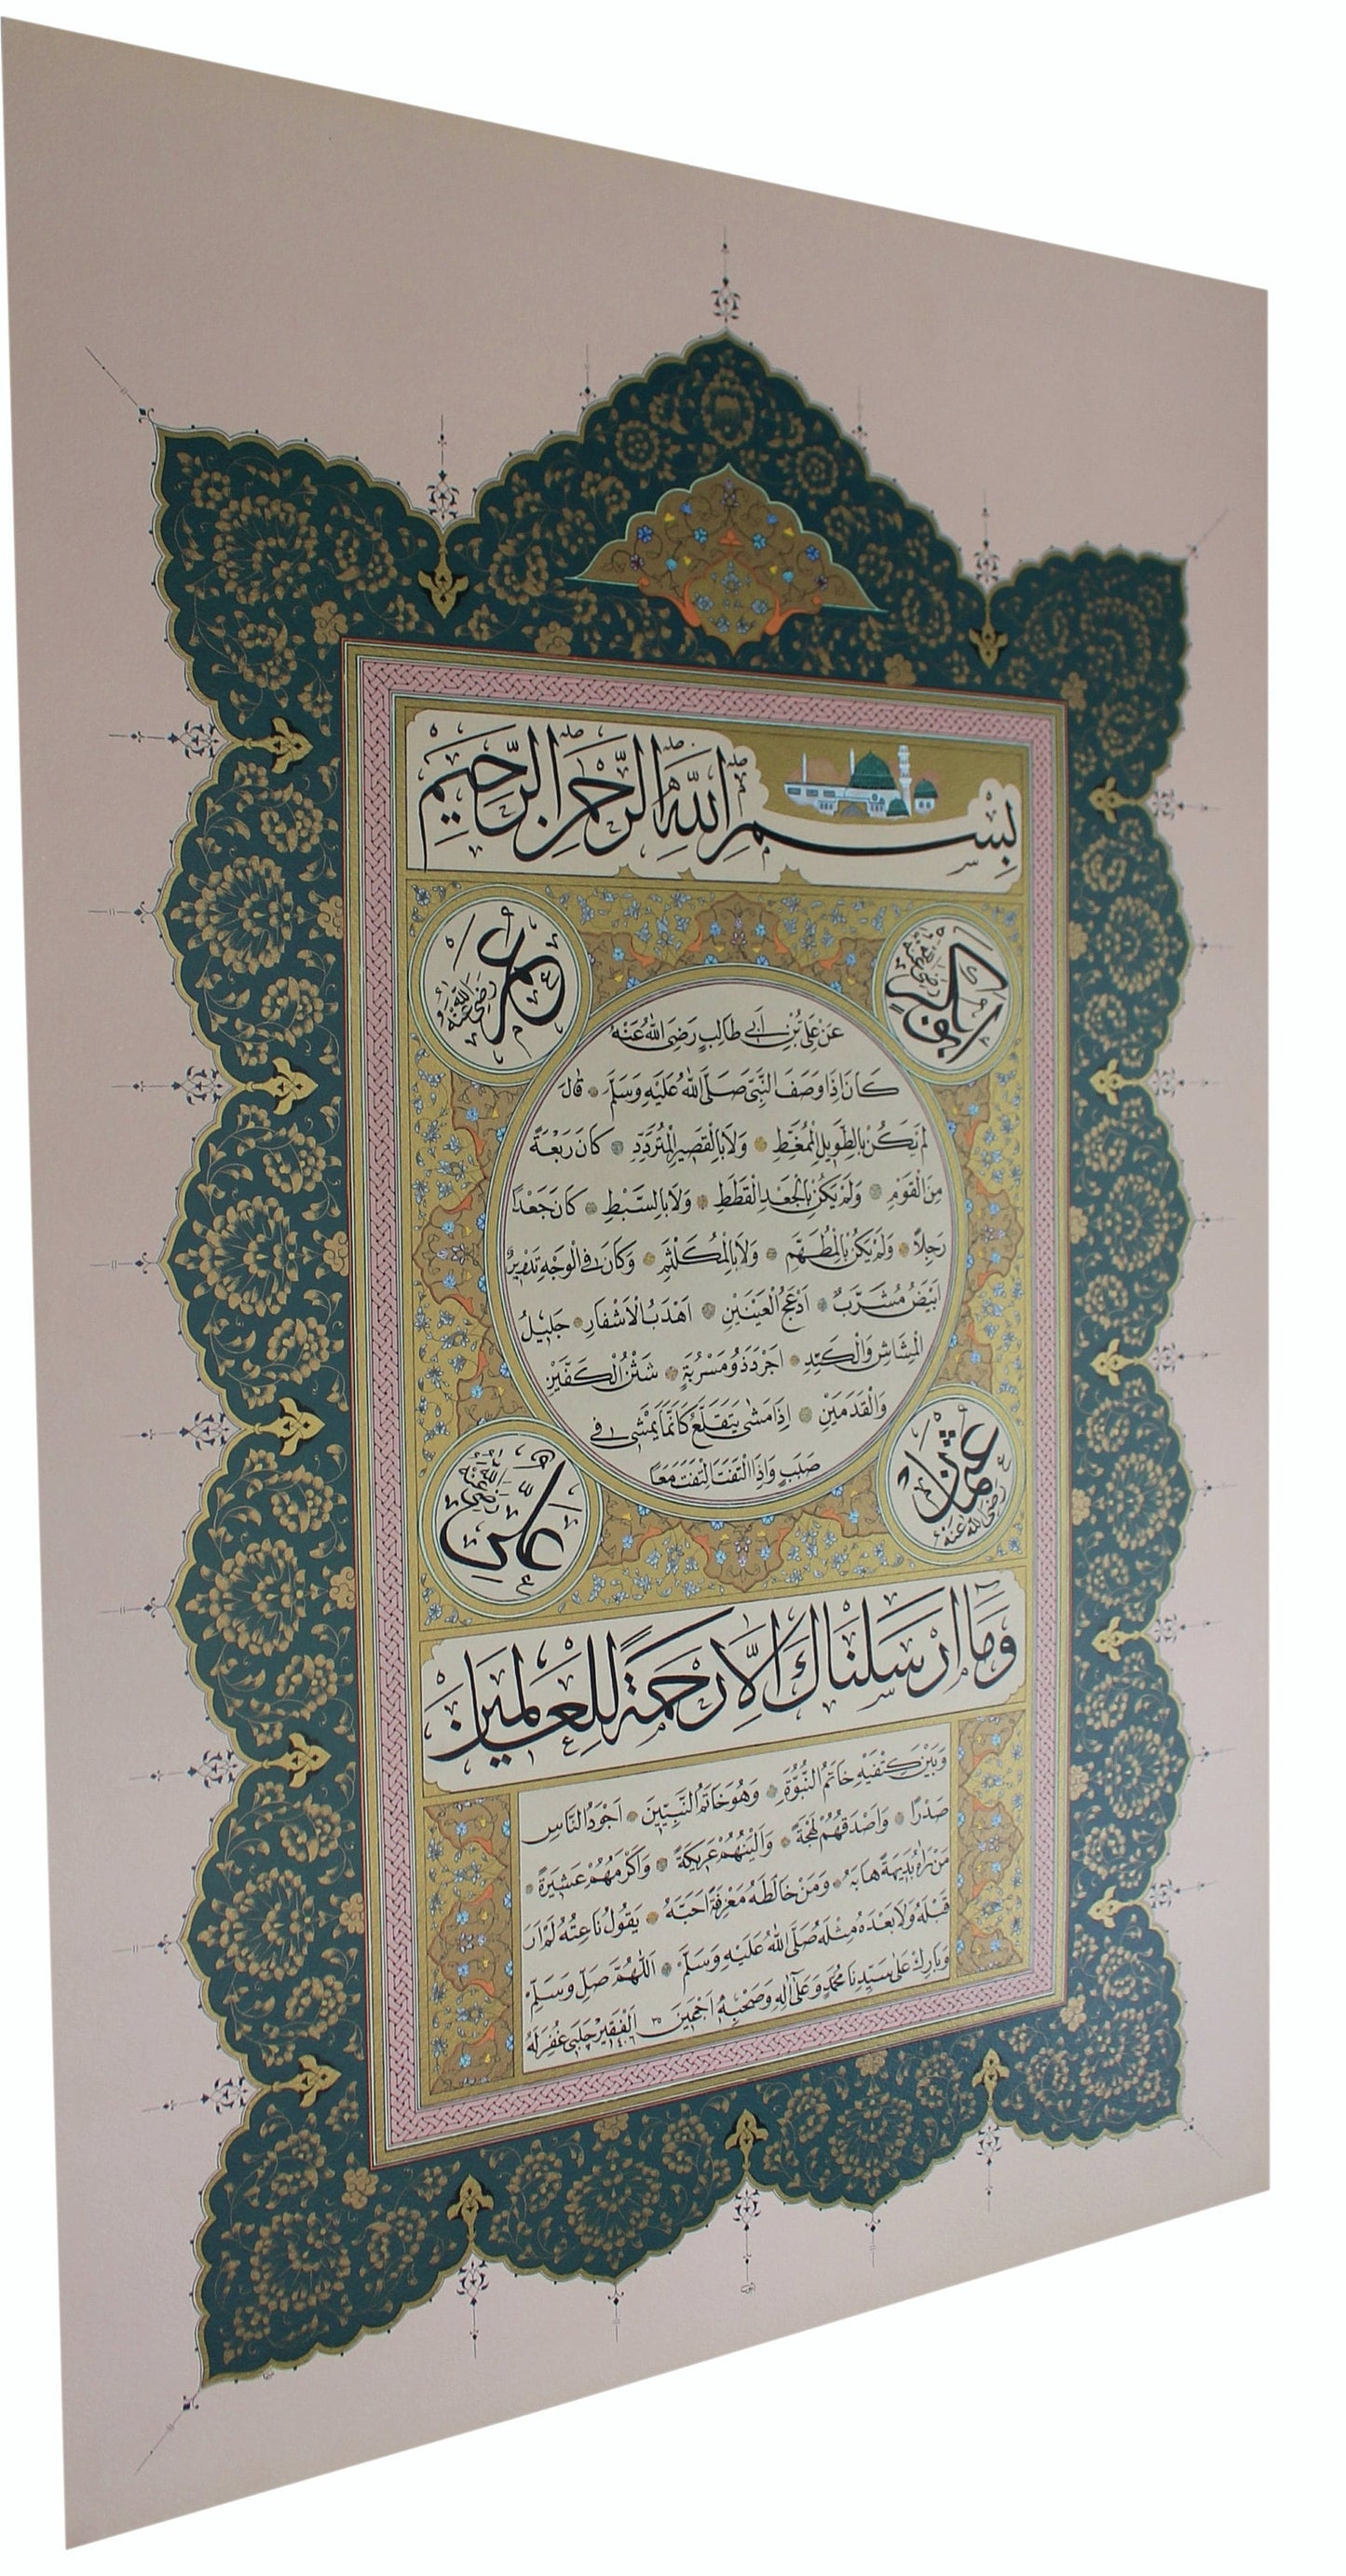 بِسْمِ اللّٰهِ الرَّحْمٰنِ الرَّحِيمِ
ابو بكر رضى الله عنه
عُمَر رَضِىَ اللهُ عَنْهُ
عَنْ عَلِىِّ بْنِ اَبِى طَالِبٍ رَضِىَ اللهُ عَنْهُ
كَانَ اِذَا وَصَفَ النَّبِىَّ صَلَّى اللهُ عَلَيْهِ وَسَلَّمَ قَالَ
لَمْ يَكُنْ بِالطَّوِيلِ الْمُمَّغِطِ وَلَا بِالْقَصِيرِ الْمُتَرَدِّدِ كَانَ رَبْعَةً
مِنَ الْقَوْمِ وَلَمْ يَكُنْ بِالْجَعْدِ الْقَطَطِ وَلَا بِالسَّبْطِ كَانَ جَعْدًا
رَجِلًا وَلَمْ يَكُنْ بِالْمُطَهَّمِ وَلَا بِالْمُكَلْثَمِ وَكَانَ فِى الْوَجْهِ تَدْوِيرٌ
اَبْيَضُ مُشَرَّبٌ اَدْعَجُ الْعَيْنَيْنِ اَهْدَبُ الْاَشْفَارِ جَلِيلُ
الْمُشَاشِ وَالْكَتَدِ اَجْرَدُ ذُو مَسْرُبَةٍ شَثْنُ الْكَفَّيْنِ
وَالْقَدَمَيْنِ اِذَا مَشٰى يَتَقَلَّعُ كَاَنَّمَا يَمْشِى فِى
صَبَبٍ وَاِذَا الْتَفَتَ الْتَفَتَ مَعًا
عثمان رضى الله عنه
على رضى الله عنه
وَمَا اَرْسَلْنَاكَ اِلَّا رَحْمَةً لِلْعَالَمِينَ
وَبَيْنَ كَتِفَيْهِ خَاتَمُ النُّبُوَّةِ وَهُوَ خَاتَمُ النَّبِيِّينَ اَجْوَدُ النَّاسِ
صَدْرًا وَاَصْدَقُهُمْ لَهْجَةً وَاَلْيَنُهُمْ عَرِيكَةً وَاَكْرَمُهُمْ عَشِيرَةً
مَنْ رَاٰهُ بَدِيهَةً هَابَهُ وَمَنْ خَالَطَهُ مَعْرِفَةً اَحَبَّهُ يَقُولُ نَاعِتُهُ لَمْ اَرَ
قَبْلَهُ وَلَا بَعْدَهُ مِثْلَهُ صَلَّى اللهُ عَلَيْهِ وَسَلَّمَ اَللّٰهُمَّ صَلِّ وَسَلِّمْ
وَبَارِكْ عَلٰى سَيِّدِنَا مُحَمَّدٍ وَعَلٰى اٰلِهِ وَصَحْبِهِ اَجْمَعِينَ الْفَقِيرُ چَلَبِى غُفِرَ لَهُ
١٤٠٦